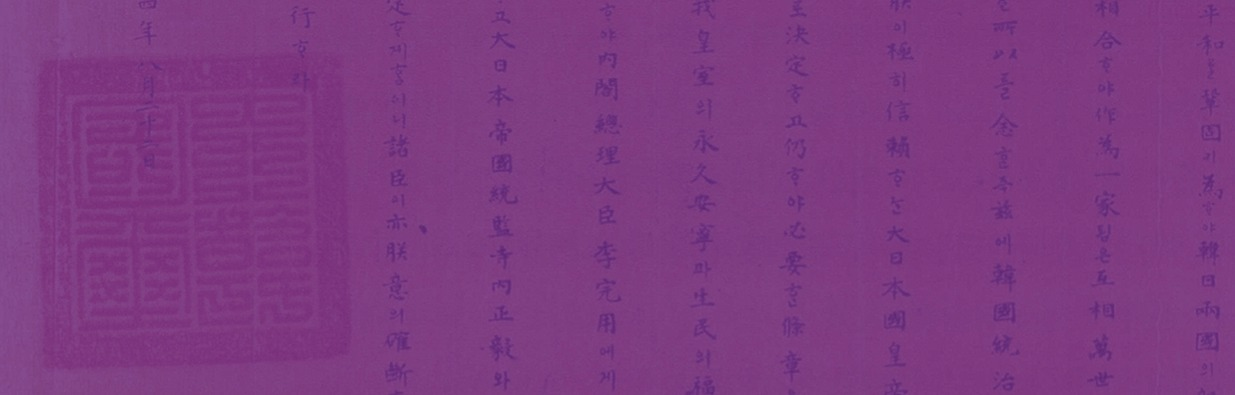 平和를鞏固기為ᄒᆞ야韓日兩國의
相合ᄒᆞ야作為一家됨은互相萬世
所以를念ᄒᆞᆫ즉玆에韓國統治
朕이極히信賴ᄒᆞᄂᆞᆫ大日本國皇帝
決定ᄒᆞ고仍ᄒᆞ야必要ᄒᆞᆫ條章
我皇室의永久安寧과生民의福
ᄒᆞ야內閣總理大臣李完用에게
고大日本帝國統監寺內正毅와
定ᄒᆞ게ᄒᆞᆷ이니諸臣이亦朕意의確斷
行ᄒᆞ라
四年八月二十二日